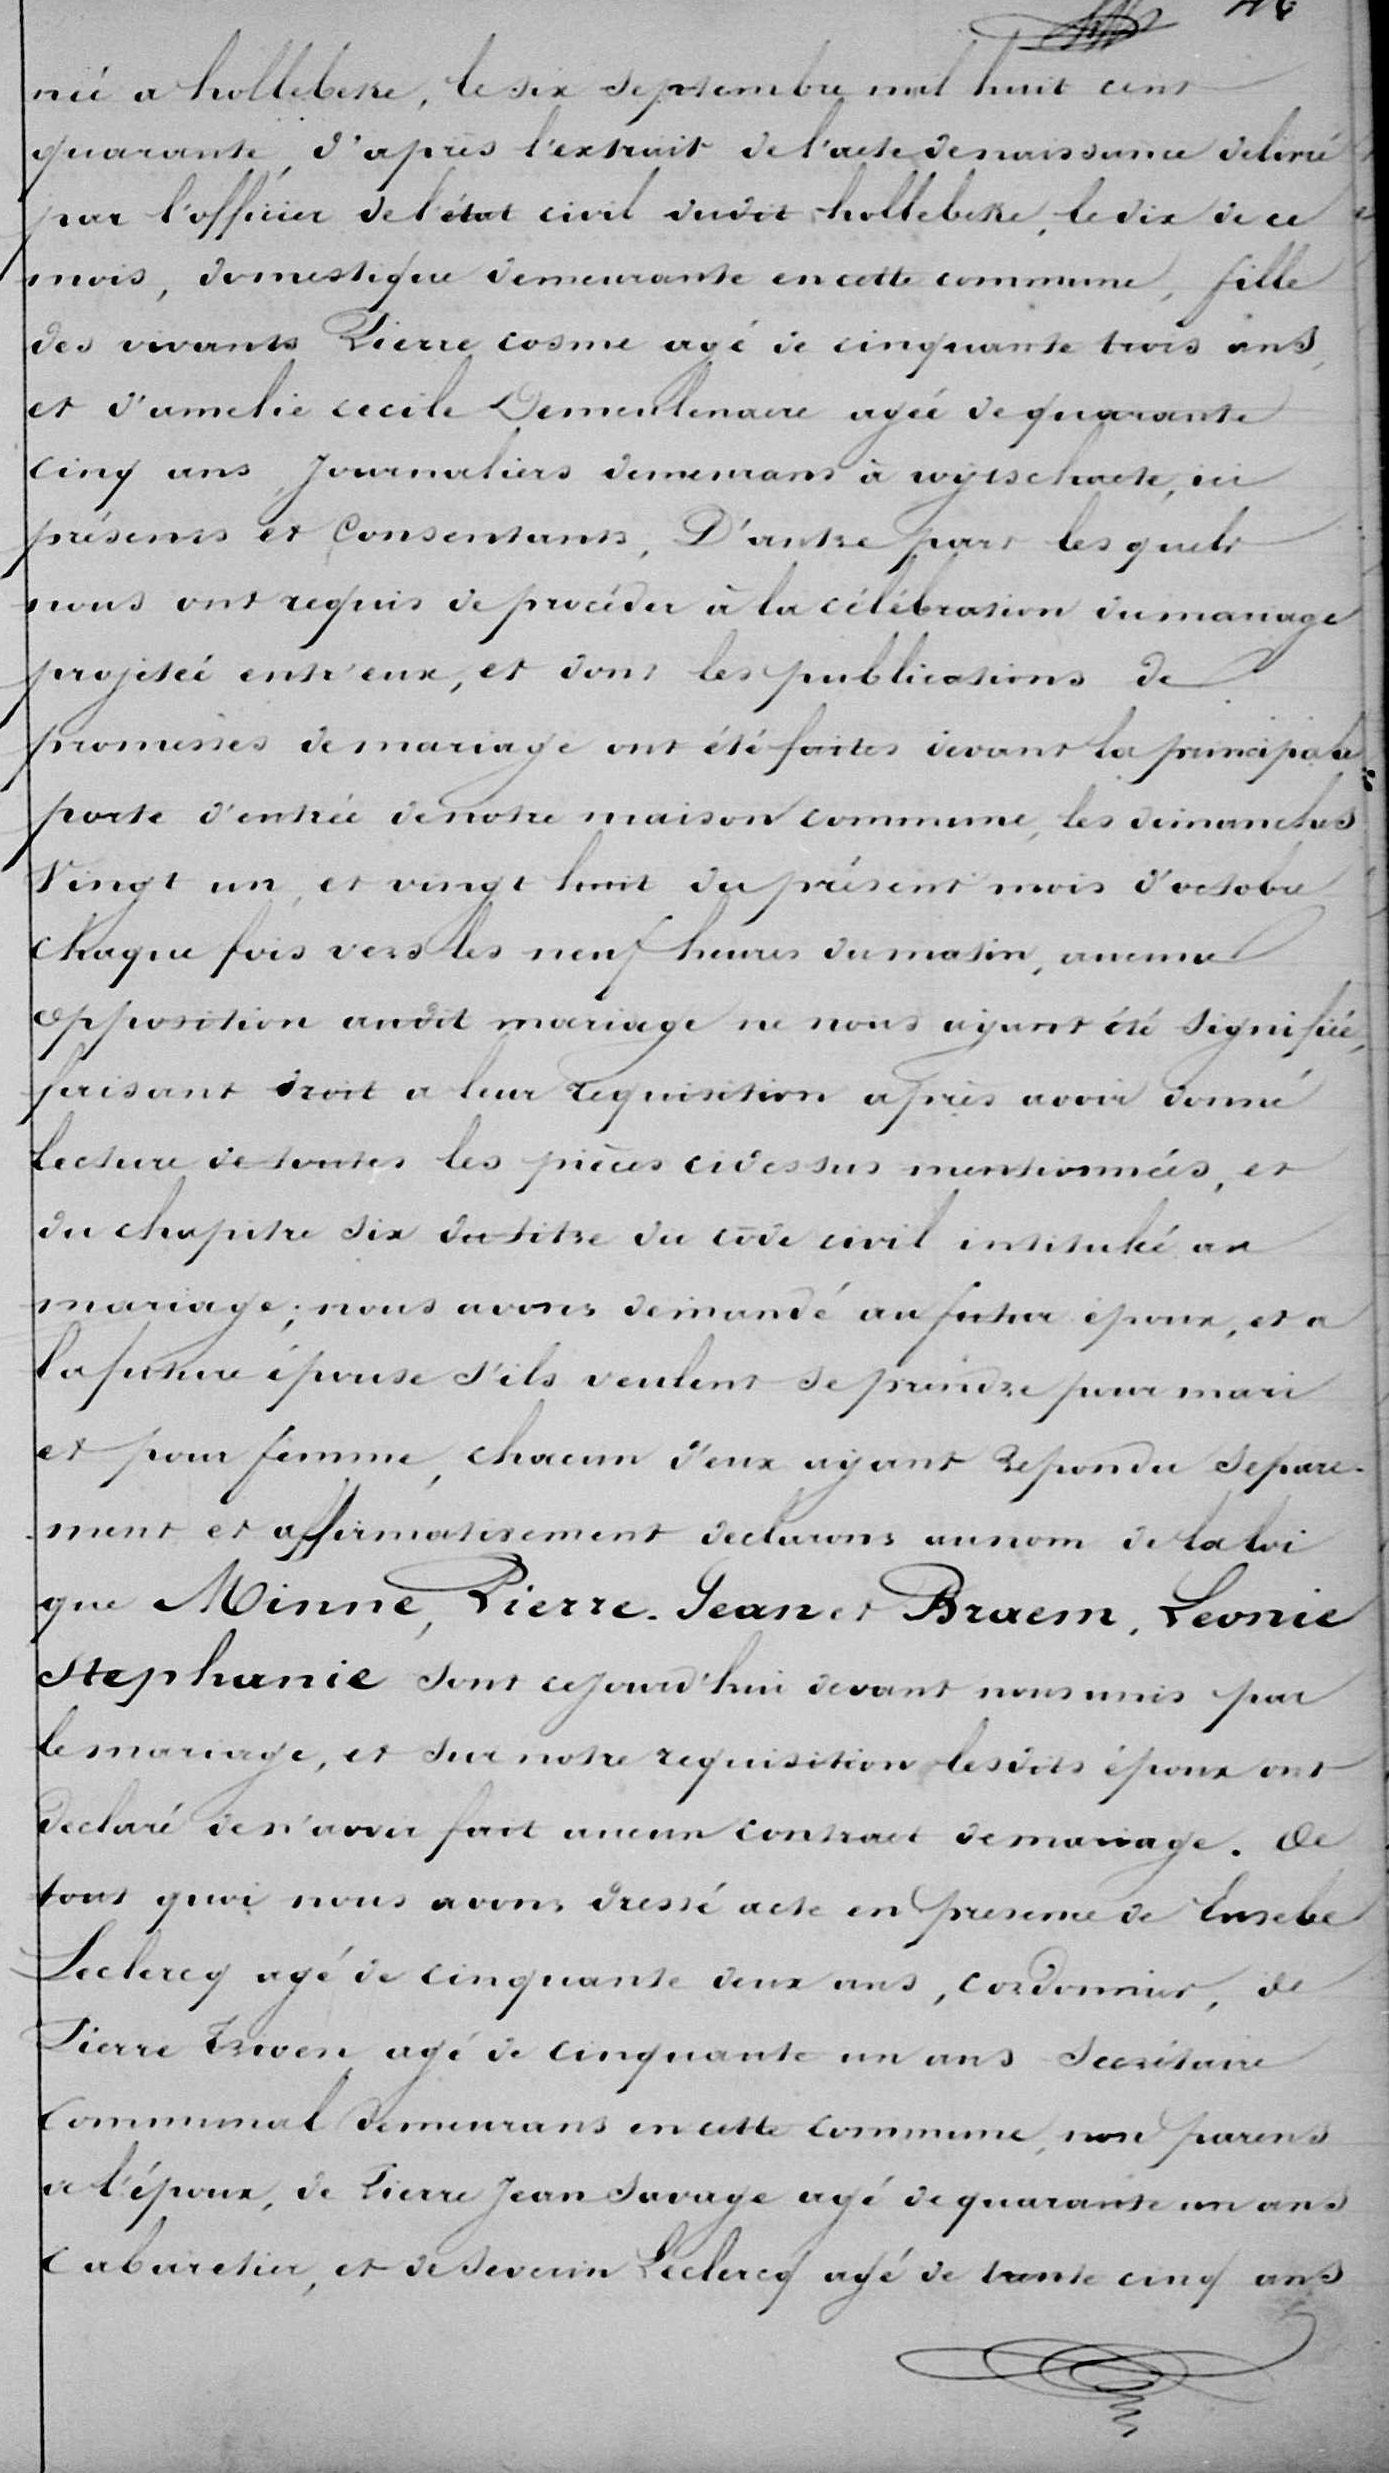 née a hollebeke, le six septembre mil huit cent
quarante, d'après l'extrait de l'acte de naissance delivré
par l'officier de l'état civil dudit hollebeke, le dix de ce
mois, domestique demeurante en cette commune, fille
des vivants Pierre cosme agé de cinquante trois ans,
et d'amelie cecile Demeulenaere agée de quarante
cinq ans, Journaliers demeurans à wytschaete, ici
présents et Consentants, D'autre part les quels
nous ont requis de procéder à la célébration du mariage
projetée entr'eux, et dont les publications de
promesses de mariage ont été faites devant la principale
porte d'entrée de notre maison commune, les dimanches
Vingt un, et vingt huit du présent mois d'octobre
Chaque fois vers les neuf heures du matin, aucune
opposition audit mariage ne nous ayant été signifiée,
faisant droit a leur requisition après avoir donné
Lecture de toutes les pièces cidessus mentionnées, et
du chapitre six du titre du code civil intitulé au
mariage; nous avons demandé au futur époux, et a
la future épouse s'ils veulent se prendre pour mari
et pour femme, chacun d'eux ayant Repondu separe-
-ment et affirmativement declarons au nom de la loi
que Minne, Pierre-Jean et Braem, Leonie
Stephanie sont cejourd'hui devant nous unis par
le mariage, et sur notre requisition lesdits époux ont
declaré de n'avoir fait aucun contract de mariage. De
tout quoi nous avons dressé acte en presence de Eusebe
Leclercq agé de cinquante deux ans, cordonnier, de
Pierre agé de cinquante un ans Secrétaire
Communal demeurans en cette commune, non parens
a l'époux, de Pierre Jean Savage agé de quarante un ans
Cabaretier, et de Severin Leclercq agé de trente cinq ans